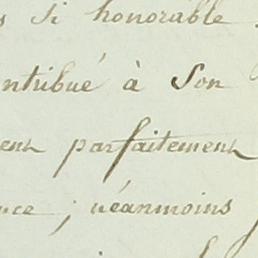 s si honorable
ntribué à son
ent parfaitement
nce ; néanmoins